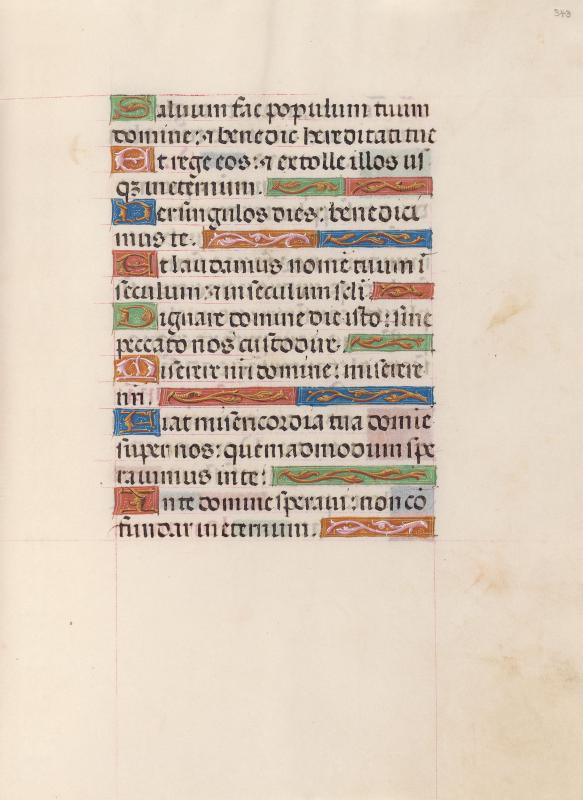 343
Saluum fac populum tuum
domine: ⁊ benedic hereditati tue
Et rege eos: ⁊ extolle illos us
qꝫ in eternum.
Per singulos dies: benedici
mus te.
Et laudamus nomē tuum ī
seculum: ⁊ in seculum scli.
Dignare domine die isto: sine
peccato nos custodire.
Miserere nr̄i domine: miserere
nr̄i.
Fiat misericordia tua domīe
super nos: quemadmodum spe
rauimus in te.
In te domine speraui: non cō
fundar in eternum.